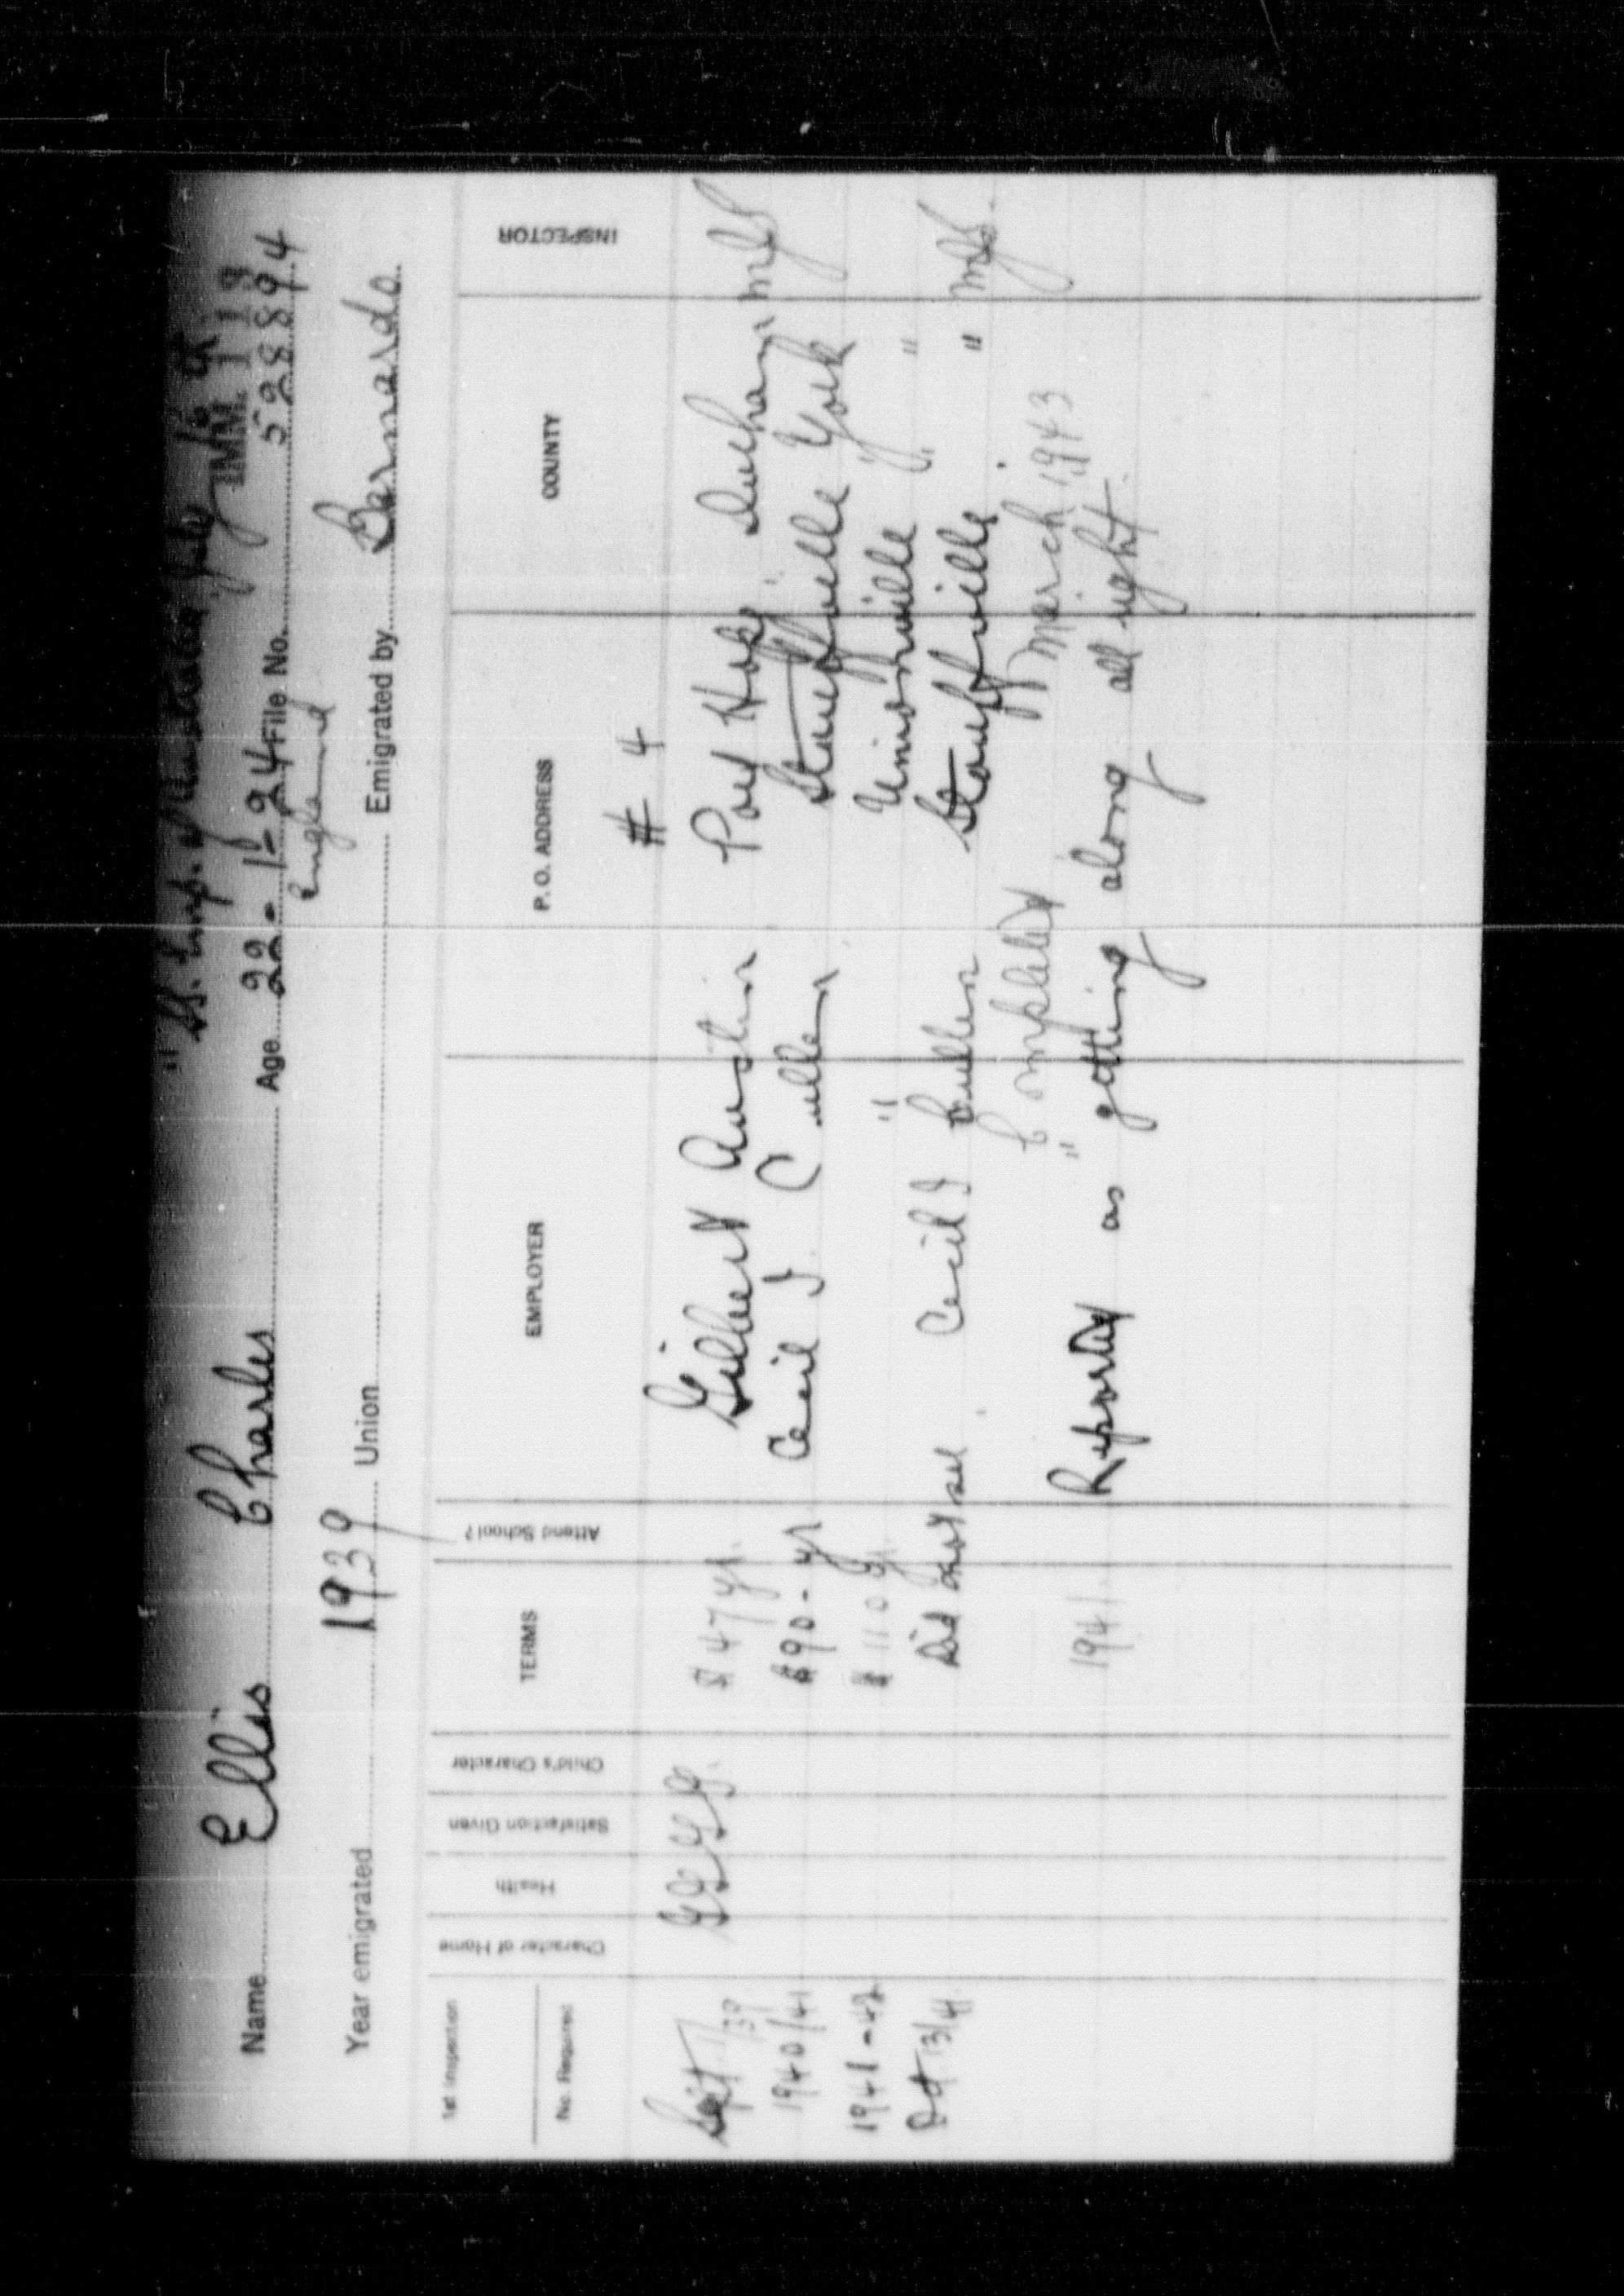 " SS. Emp. of Australia July 16th
IMM. 119
Name Ellis Charles Age 22-1-24 File No. 528894
England
Year emigrated 1939 Union Emigrated by Barnardo
1st Inspection
No. Required Character of Home Health Satisfaction Given Child's Character TERMS Attend School? EMPLOYER P. O. ADDRESS COUNTY INSPECTOR
# 4
Sept /39 G G G G. $ 47 yr. Gilbert Austin Port Hope Durham
1940/41 $90- yr Cecil J. Cullen Stouffville York
1941-42 $ 110 yr. " Unionville "
Oct 13/41 Did not see. Cecil J Cullen Stouffville "
Completed March 1943
1941. Reported as getting along all right.